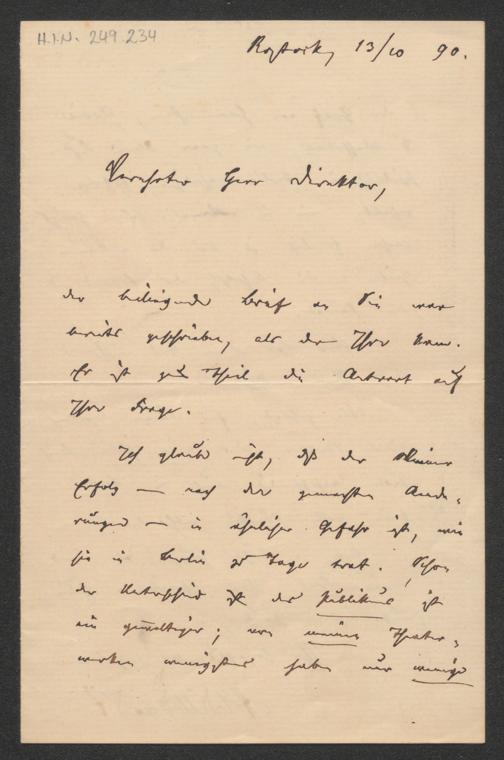 H.I.N. 249.234
Rostock, 13/10 90.
Verehrter Herr Direktor,
der beiliegende Brief an Sie war
bereits geschrieben, als der Ihre kam.
Er ist zum Theil die Antwort auf
Ihre Frage.
Ich glaube nicht, daß der Wiener
Erfolg — nach den gemachten Ände-
rungen — in ähnlicher Gefahr ist, wie
sie in Berlin zu Tage trat. Schon
der Unterschied des Publikums ist
ein gewaltiger; von meinen Theater-
werken wenigstens haben nur wenige